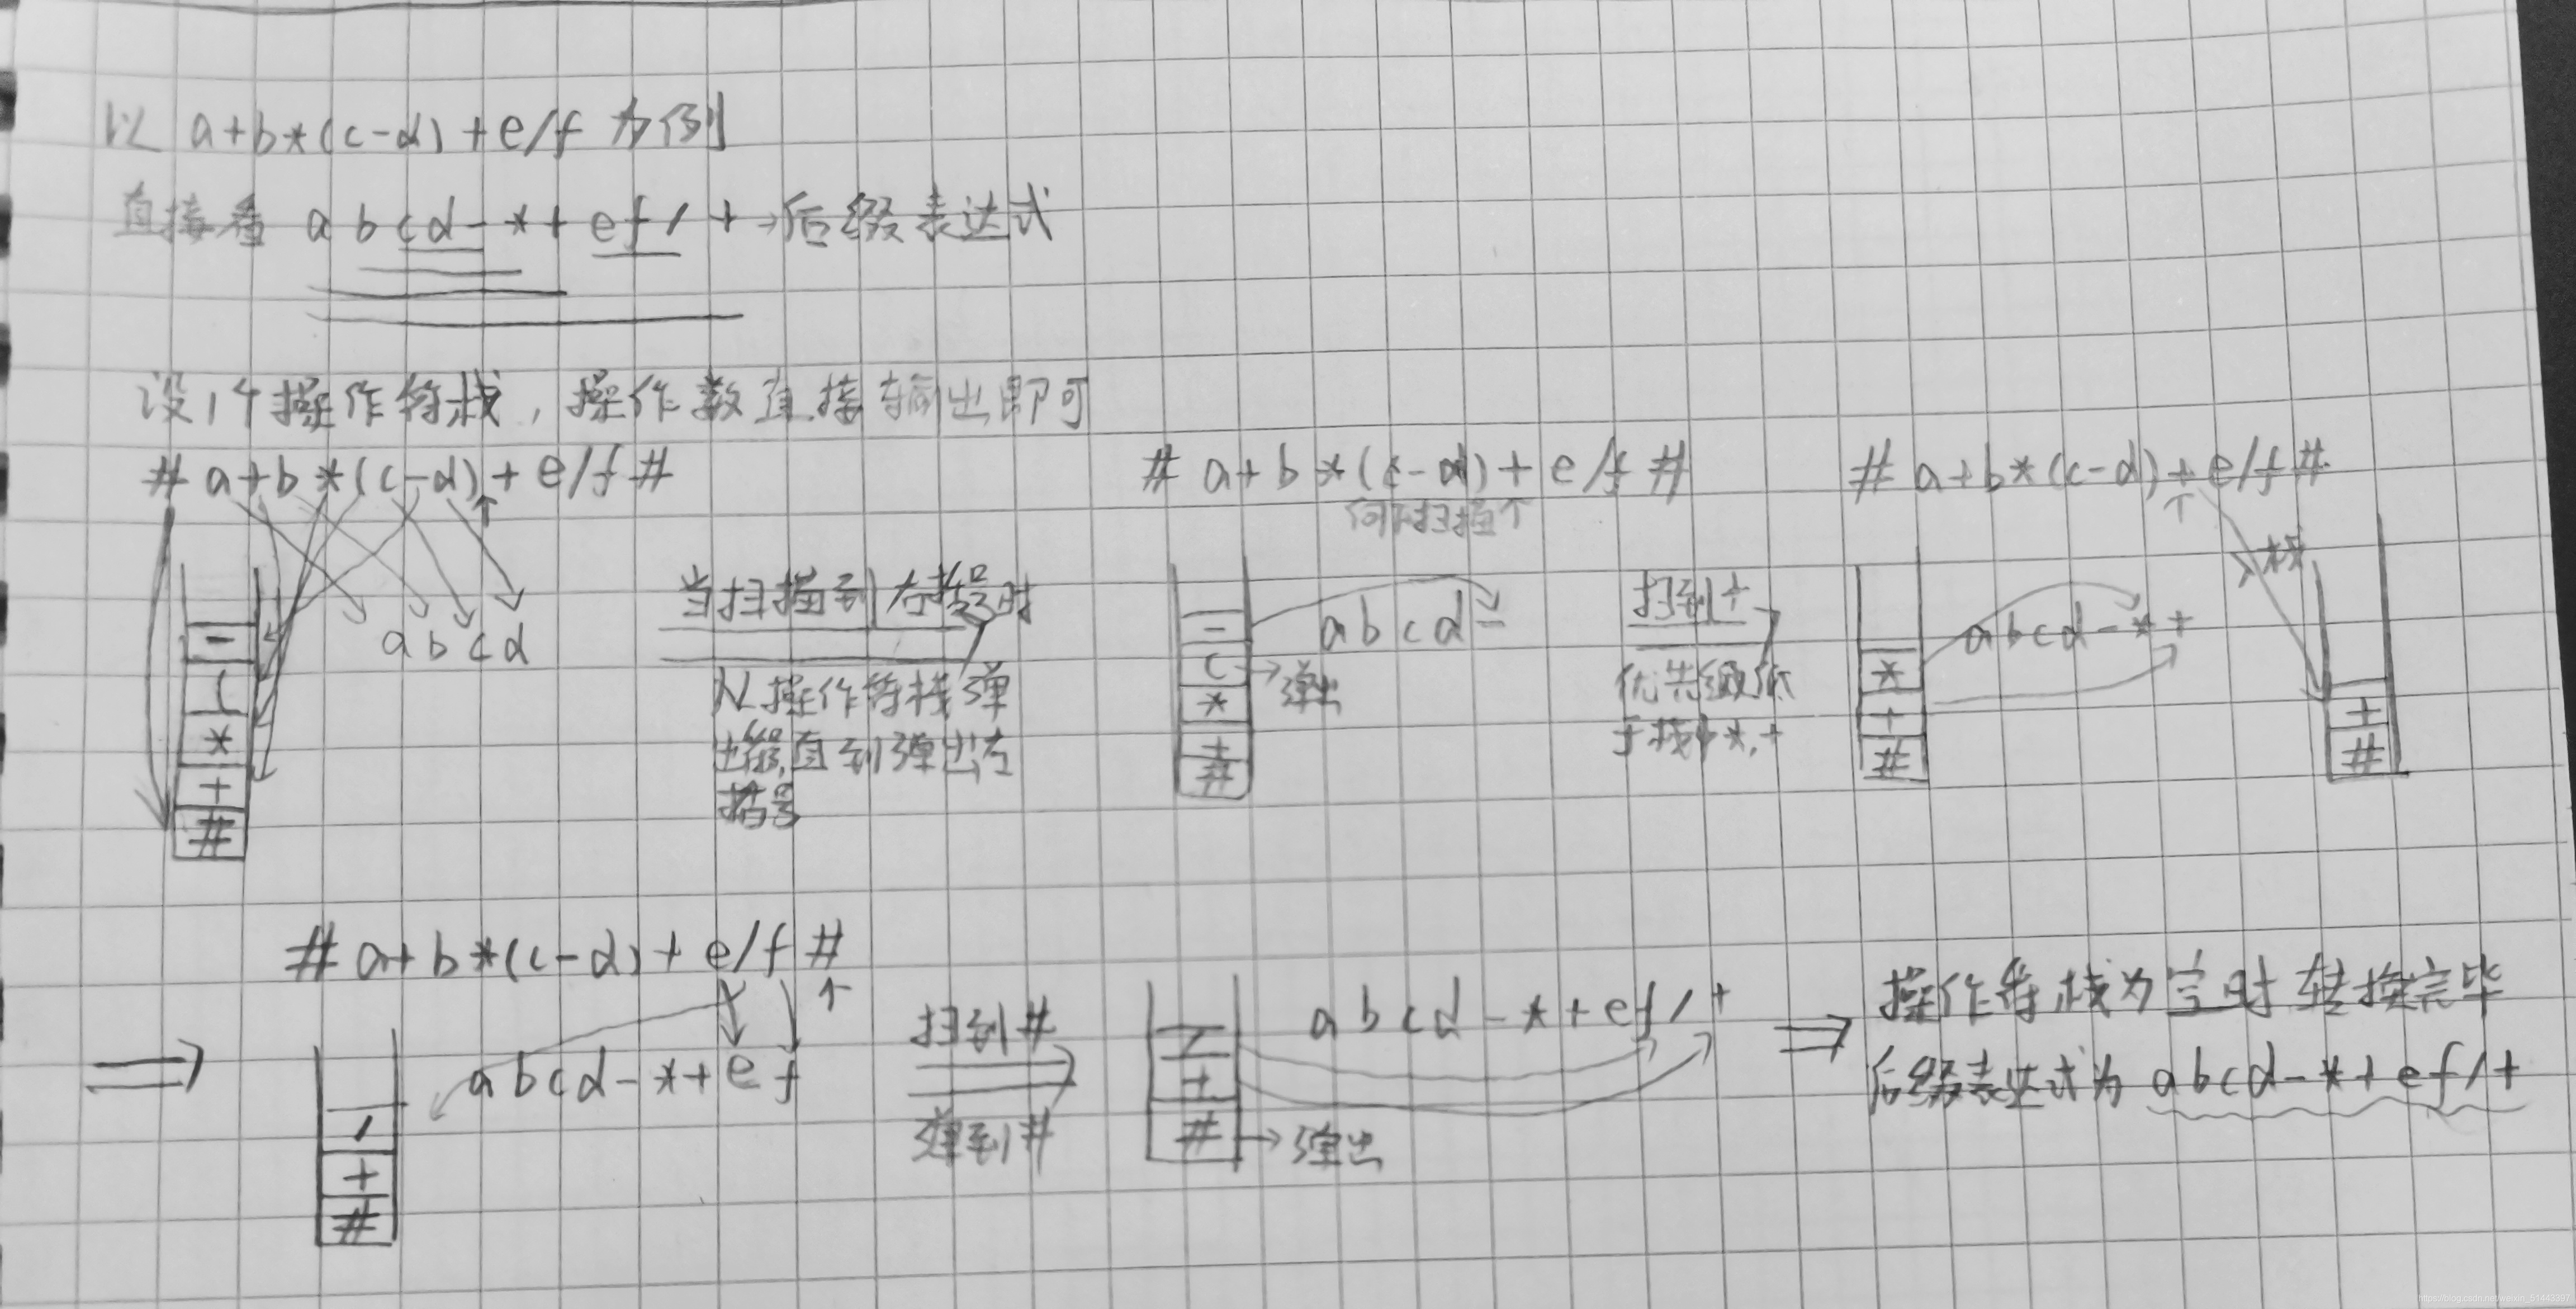 以 a+b*(c-d)+e/f 为例
直接看 a b c d - * + e f / + →后缀表达式
设1个操作符栈，操作数直接输出即可
# a+b*(c-d)+e/f #
-
(
*
+
#
a b c d
当扫描到右括号时
从操作符栈弹
出符号,直到弹出左
括号
# a+b*(c-d)+e/f #
向下扫描↑
-
( →弹出
*
+
#
a b c d -
扫到+
优先级低
于栈中*,+
# a+b*(c-d)+e/f #
↑
*
+
#
a b c d - * +
入栈
+
#
# a+b*(c-d)+e/f #
↑
⇒
/
+
#
a b c d - * + e f
扫到#
弹到#
/
+
# →弹出
a b c d - * + e f / +
⇒ 操作符栈为空时转换完毕
后缀表达式为 a b c d - * + e f / +